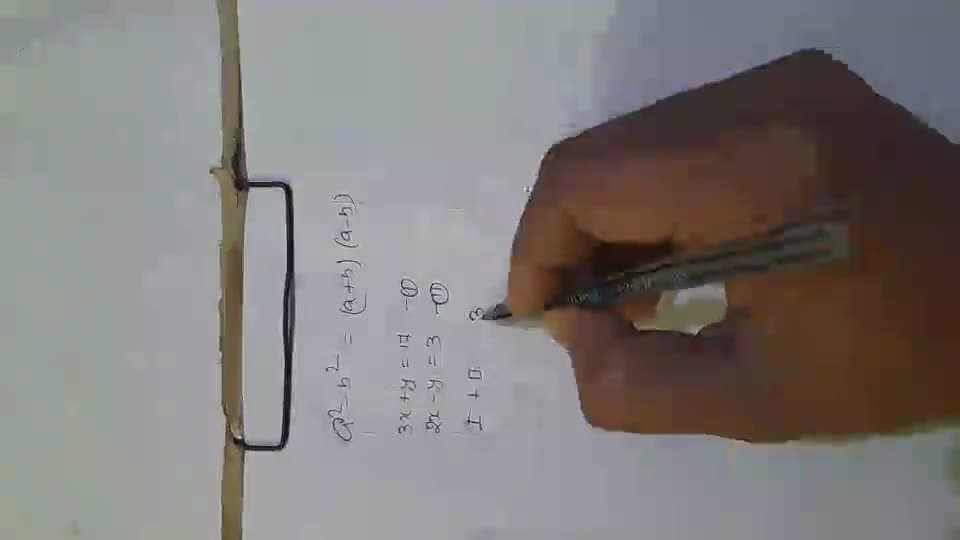 a² - b² = (a+b) (a-b)
3x + y = 17 - ①
2x - y = 3 - ⑪
I + II 3